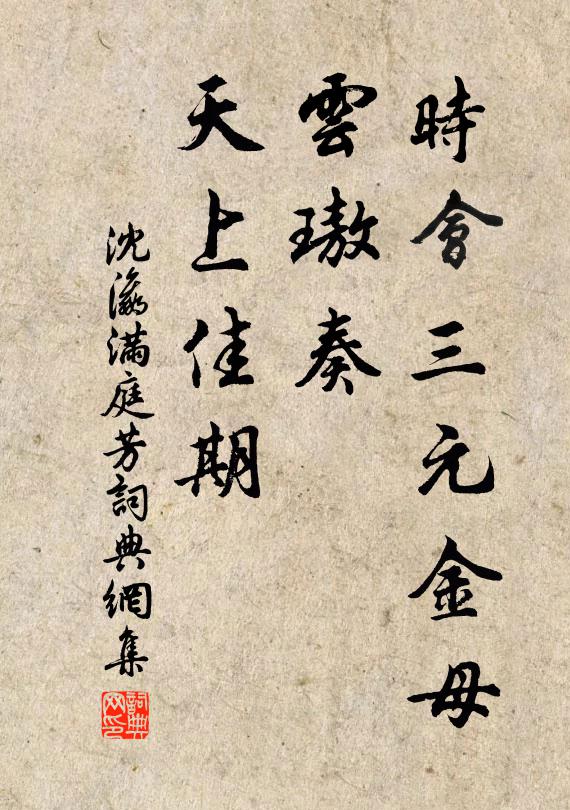 時會三元金母
雲璈奏
天上佳期
沈瀛滿庭芳詞典網集
詞典
网印